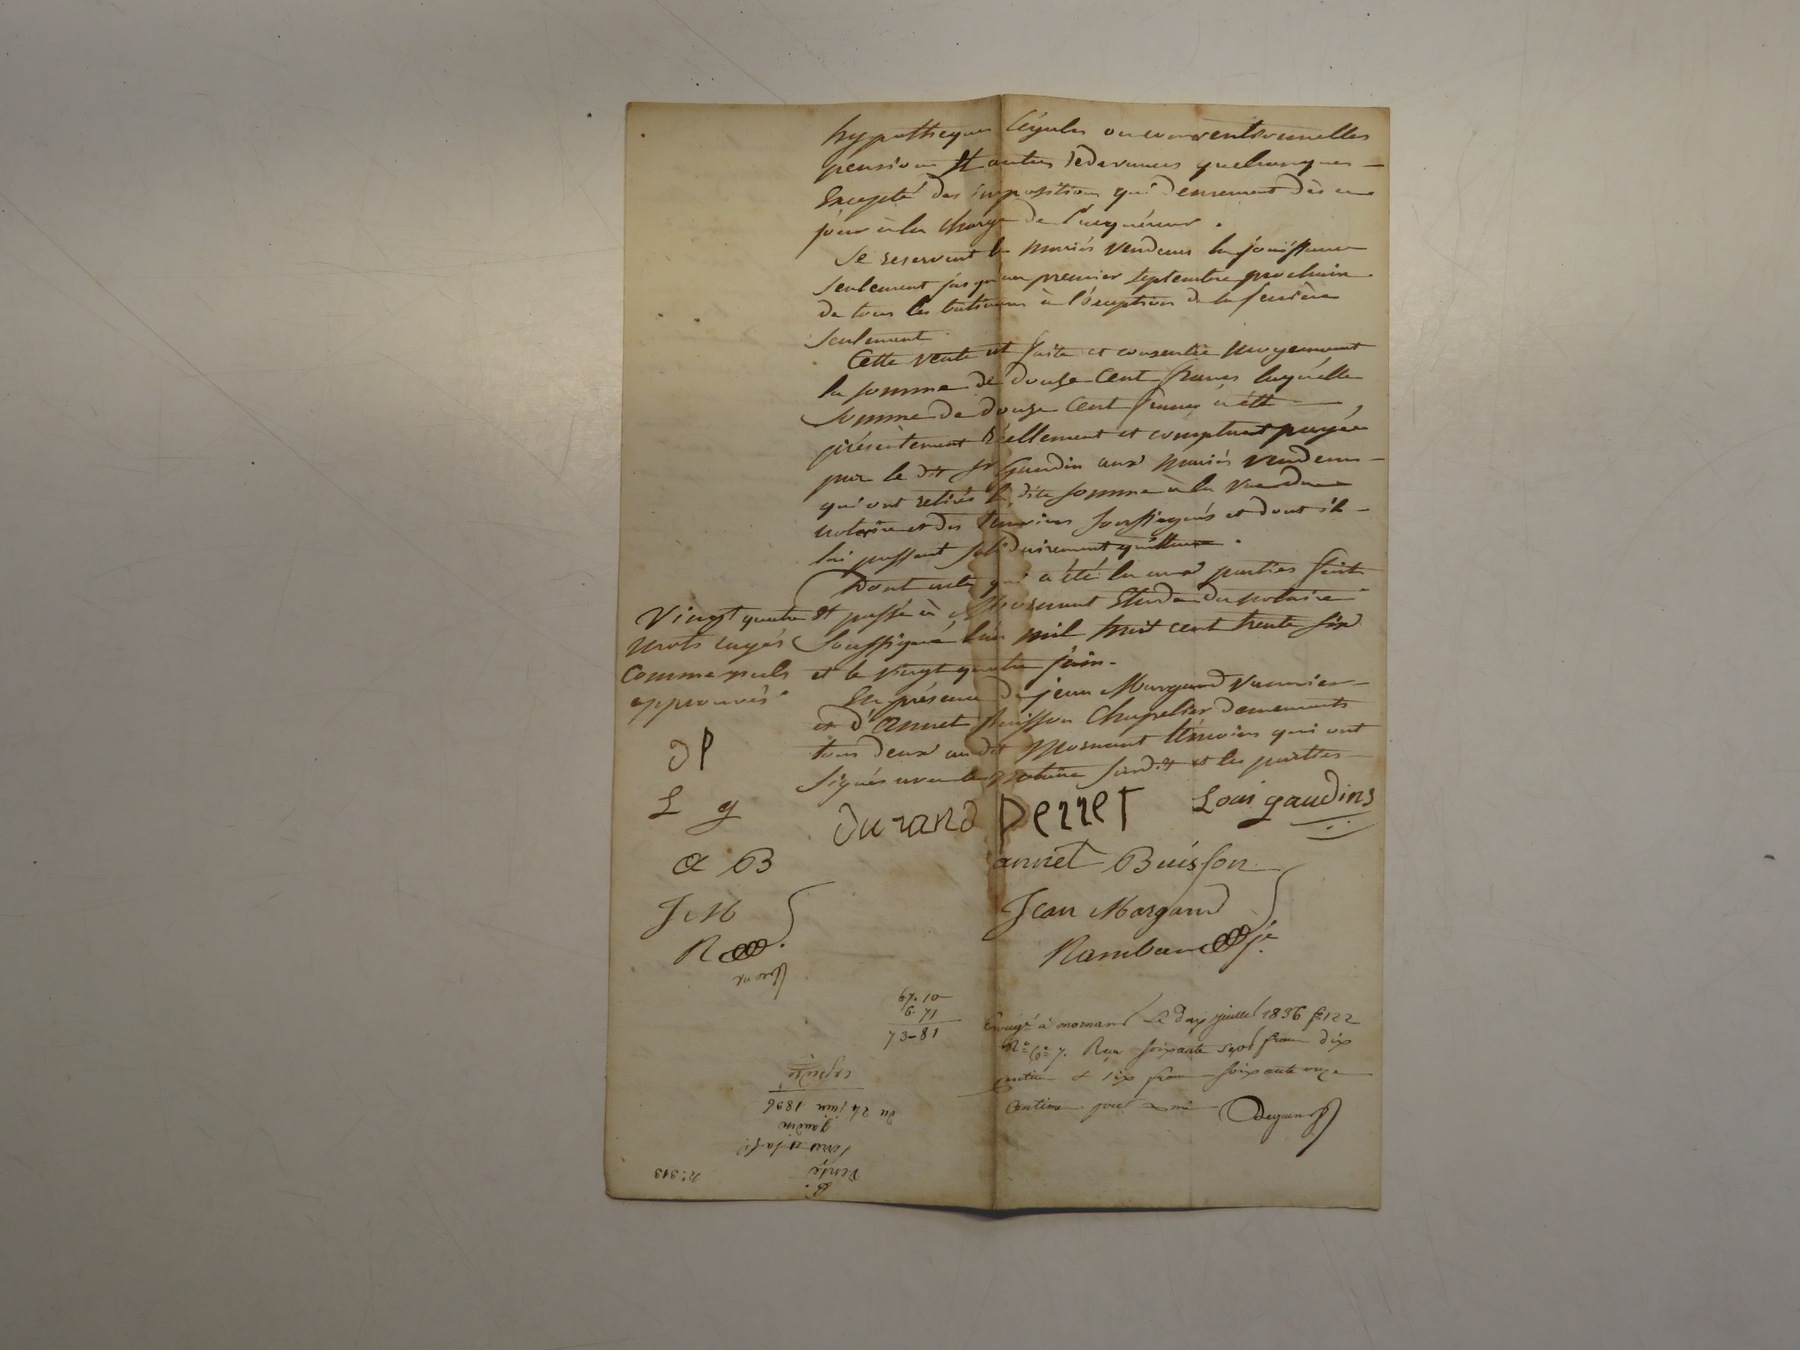 hypotheques légales ou conventionnelles
pensions et autres redevances quelconques
Excepté des impositions qui demeurent dès ce
jour à la charge de l'acquéreur.
Se reservent les mariés vendeurs la jouissance
seulement jusqu'au premier septembre prochain
de tous les batimens à l'éxception de la fenière
seulement
Cette vente est faite et consentie moyennant
la somme de douze Cent francs laquelle
somme de douze Cent francs à été
présentement réellement et comptant payée
par le dit Sr Gaudin aux mariés vendeurs
qui ont retirés la dite somme à la vue du
notaire et des témoins soussignés et dont ils
lui passent solidairement quittance.
Dont acte qui a été lu aux parties fait
et passé à Mornant Etude du notaire
soussigné l'an mil huit cent trente six
et le vingt quatre juin.
En présence de jean Margand
et d'annet Buisson Chapelier demeurants
tous deux au dit Mornant témoins qui ont
signés avec le notaire susdit et les parties
Vingt quatre
mots rayés
comme nuls
approuvés
DP
L g
a B
J M
R
Durand Perret Louis gaudins
annet Buisson
Jean Margand
67.10
6.71
73-81
à mornant Le dix juillet 1836 fo 122
Reçu soixante sept francs dix
centimes & six francs soixante onze
centimes pour
No 313
Vente
gaudin
du 24 juin 1836
expédié